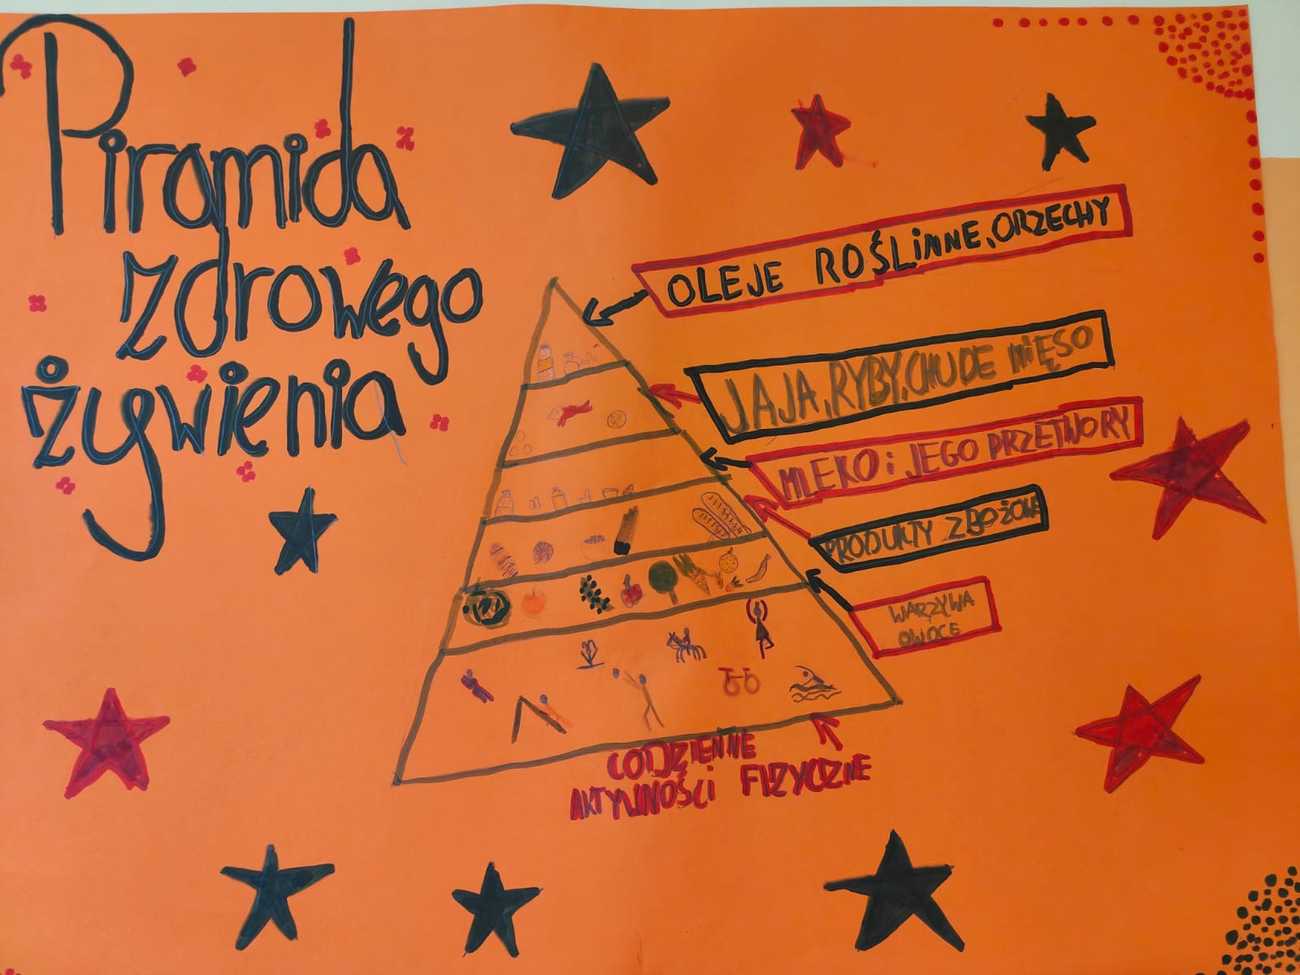 Piramida
zdrowego
żywienia
OLEJE ROŚLINNE, ORZECHY
JAJA, RYBY, CHUDE MIĘSO
MLEKO i JEGO PRZETWORY
PRODUKTY ZBOŻOWE
WARZYWA
OWOCE
CODZIENNE
AKTYWNOŚCi FIZYCZNE